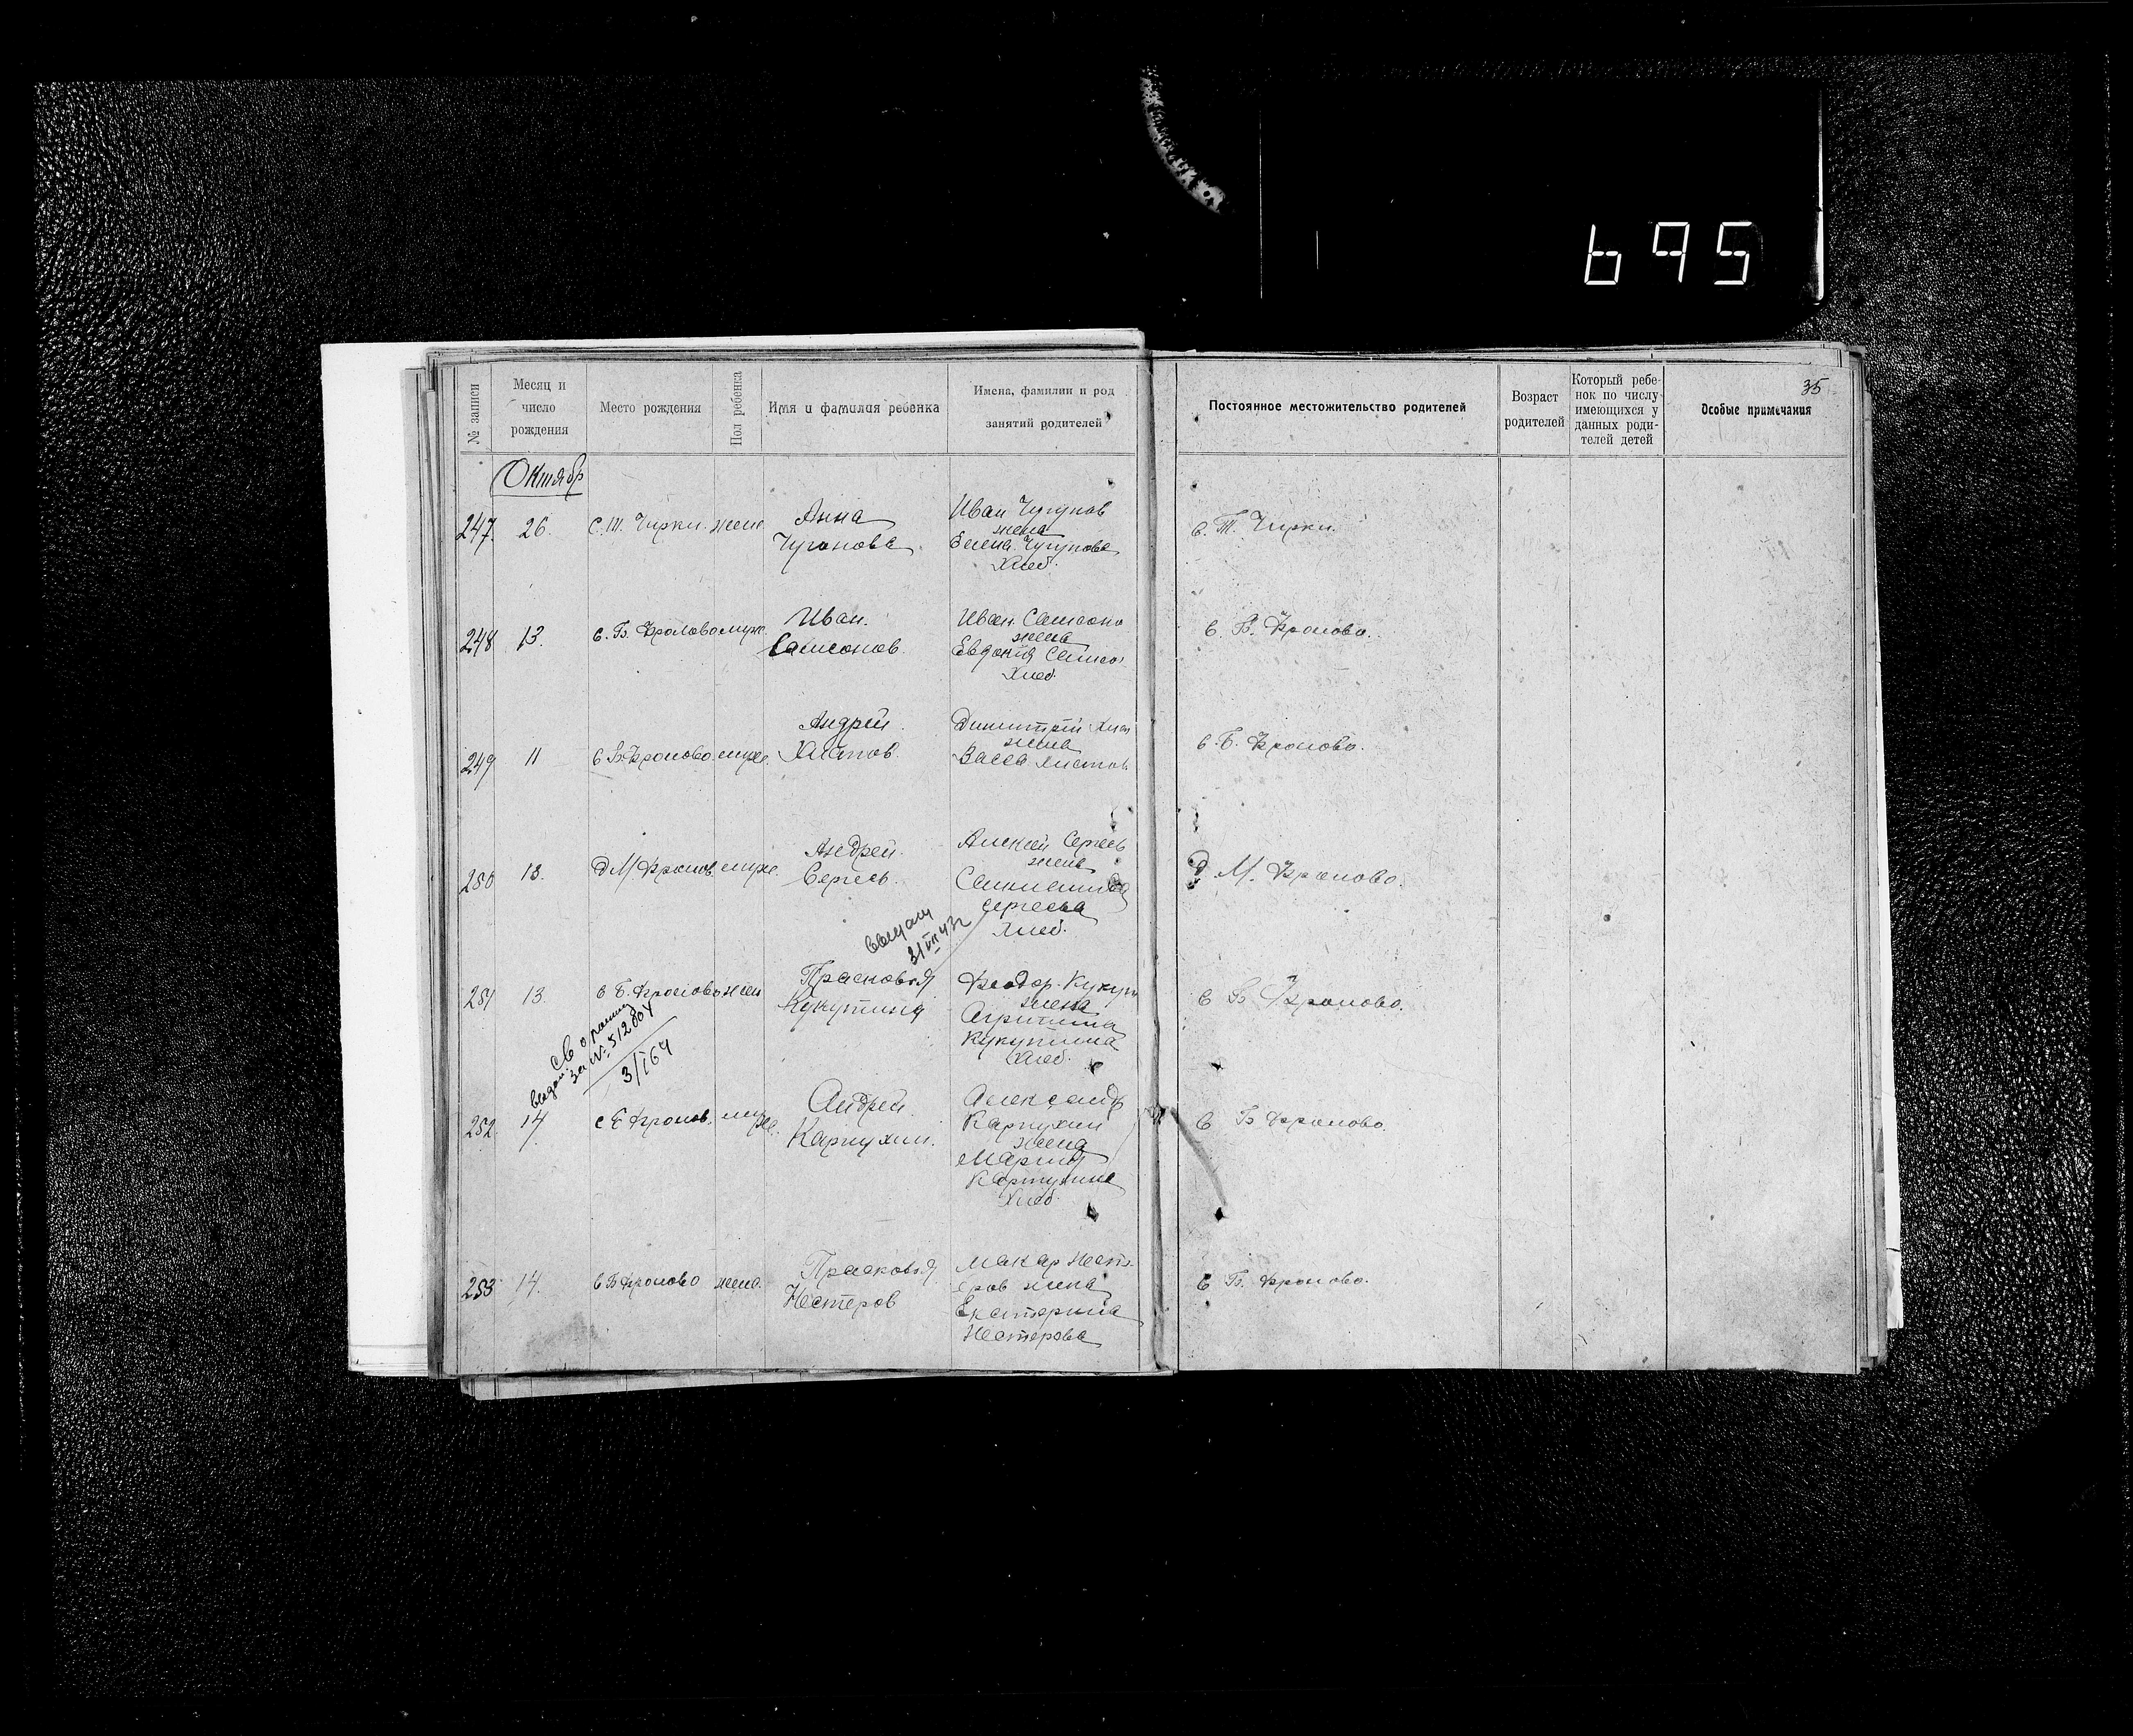 695
35
№ записи
Месяц и число рождения
Место рождения
Пол ребенка
Имя и фамилия ребенка
Имена, фамилии и род занятий родителей
Постоянное местожительство родителей
Возраст родителей
Который ребенок по числу имеющихся у данных родителей детей
Особые примечания
Октябр
247. 26. С. Т. Чирки. жен.
Анна
Чугунова
Иван Чугунов
жена
Елена Чугунова
Хлеб.
с. Т. Чирки.
248 13. с. Б. Фролово муж.
Иван.
Самсонов.
Иван Самсоно
жена
Евдокия Самсо
Хлеб.
с. Б. Фролово.
249 11 с Б. Фролово муж.
Андрей.
Хлапов.
Димитрий Хлап
жена
Васса
с. Б. Фролово.
250 13. д М. Фролов. муж.
Андрей.
Сергеев.
Алексей Сергеев
жена
Сергеева
Хлеб.
д М. Фролово.
31 VII 43г
251 13. с Б. Фролово жен
Прасковья
Кукутина
Феодор Кукути
жена
Агрипина
Кукутина
Хлеб.
с Б Фролово.
за № 512004
3/I 64
252. 14. с Б Фролов. муж.
Андрей.
Карпухин.
Александр
Карпухин
жена
Мария
Карпухина
Хлеб.
с Б Фролово.
253 14. с Б Фролово жен.
Прасковья
Нестеров
Макар Несте
еров жена
Екатерина
Нестерова
с Б. Фролово.